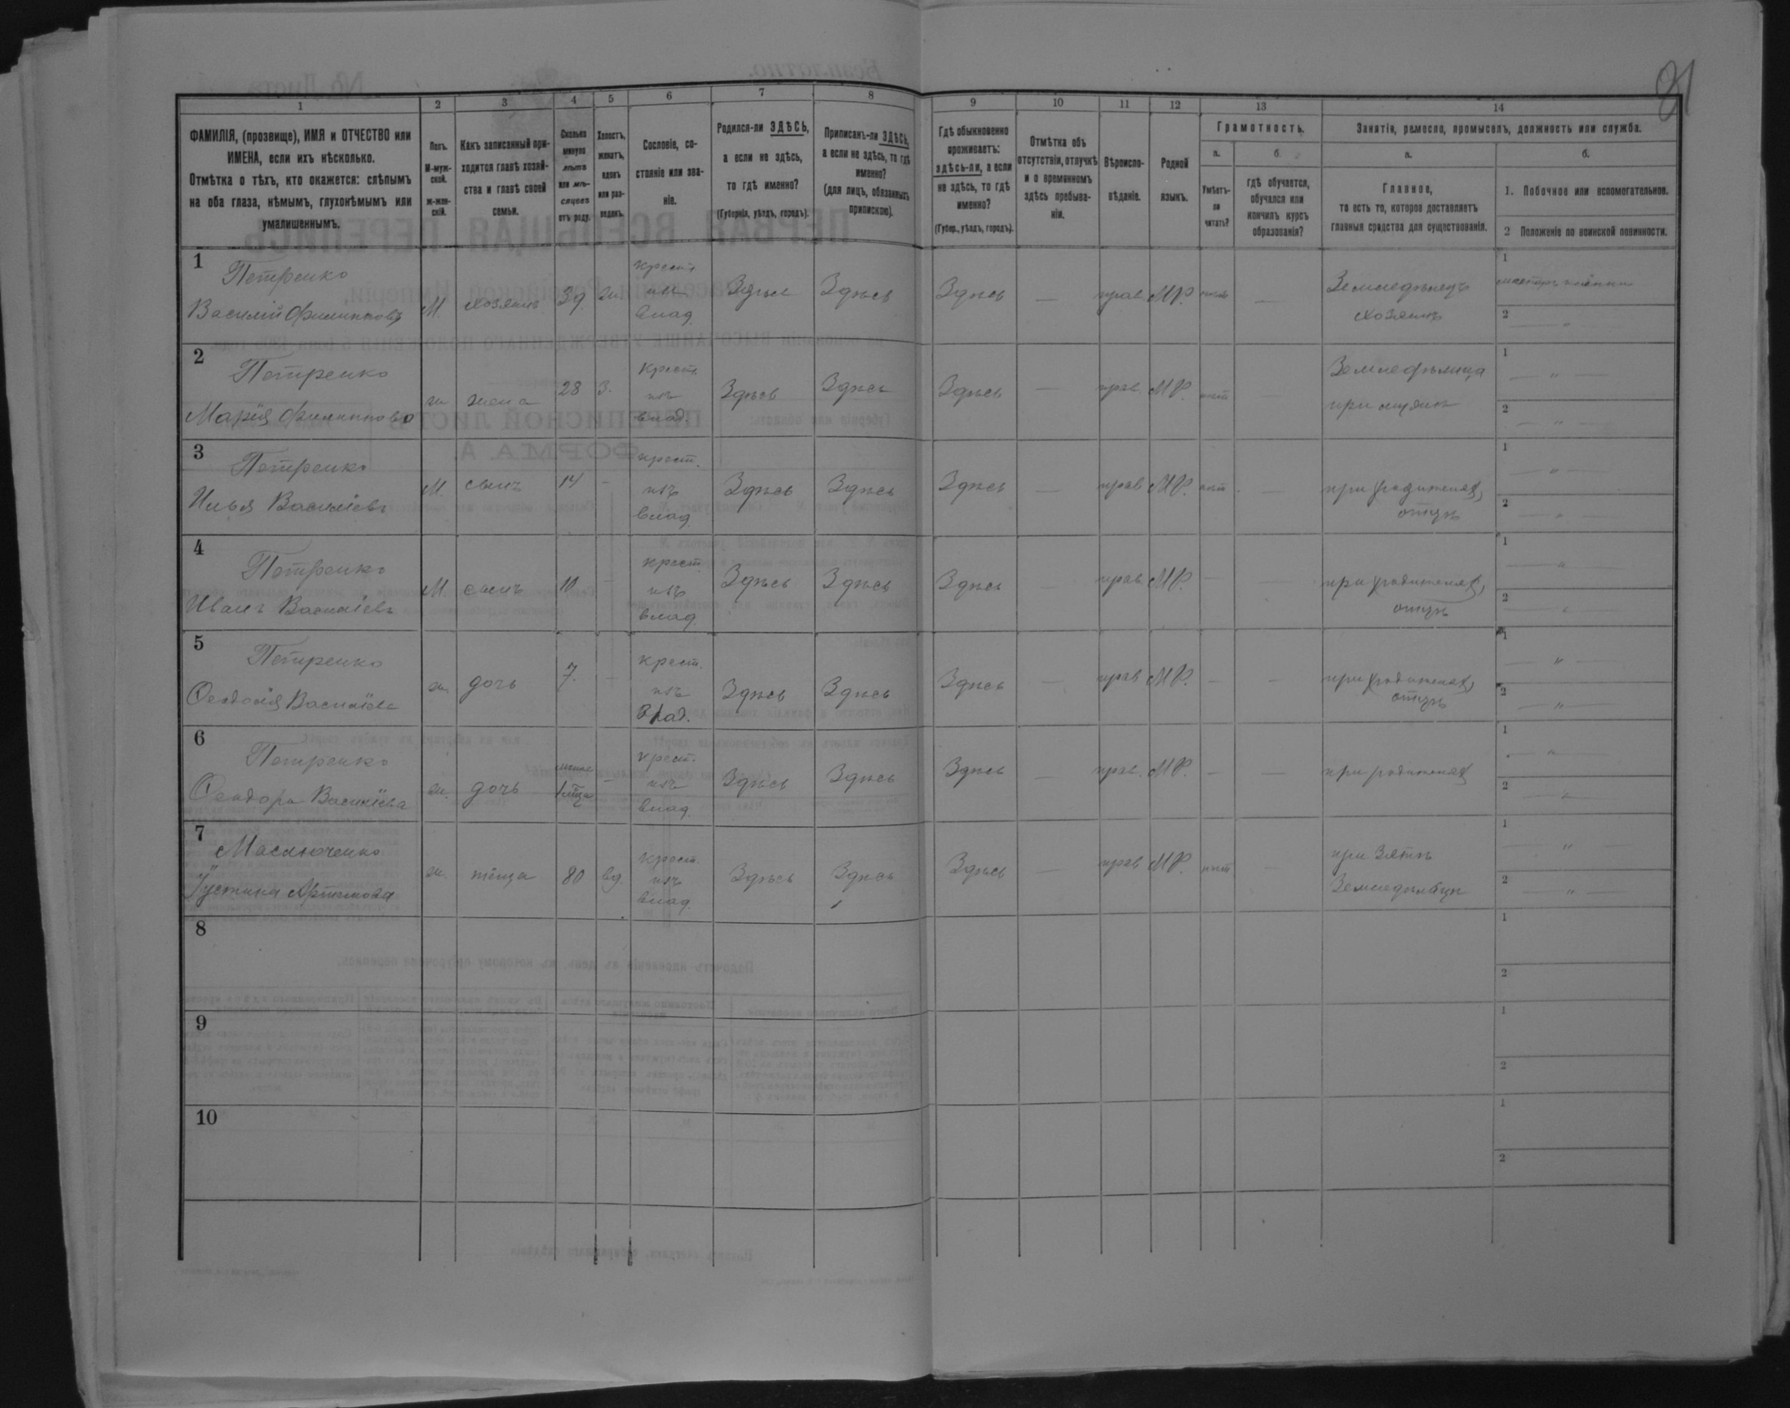 81
1 2 3 4 5 6 7 8 9 10 11 12 13 14
ФАМИЛІЯ, (прозвище), ИМЯ и ОТЧЕСТВО или
ИМЕНА, если ихъ нѣсколько.
Отмѣтка о тѣхъ, кто окажется: слѣпымъ
на оба глаза, нѣмымъ, глухонѣмымъ или
умалишеннымъ.
Полъ.
М-муж-
ской.
ж-жен-
скій.
Какъ записанный при-
ходится главѣ хозяй-
ства и главѣ своей
семьи.
Сколько
минуло
лѣтъ
или мѣ-
сяцевъ
отъ роду.
Холостъ,
женатъ,
вдовъ
или раз-
веденъ.
Сословіе, со-
стояніе или зва-
ніе.
Родился-ли ЗДѢСЬ,
а если не здѣсь,
то гдѣ именно?
(Губернія, уѣздъ, городъ).
Приписанъ-ли ЗДѢСЬ,
а если не здѣсь, то гдѣ
именно?
(для лицъ, обязанныхъ
припискою).
Гдѣ обыкновенно
проживаетъ:
здѣсь-ли, а если
не здѣсь, то гдѣ
именно?
(Губер., уѣздъ, городъ).
Отмѣтка объ
отсутствіи, отлучкѣ
и о временномъ
здѣсь пребыва-
ніи.
Вѣроиспо-
вѣданіе.
Родной
языкъ.
Грамотность.
а.
Умѣетъ-
ли
читать?
б.
гдѣ обучается,
обучался или
кончилъ курсъ
образованія?
Занятіе, ремесло, промыселъ, должность или служба.
а.
Главное,
то есть то, которое доставляетъ
главныя средства для существованія.
б.
1. Побочное или вспомогательное.
2 Положеніе по воинской повинности.
1
Петренко
Василій Филиповъ
М. хозяинъ 39. ж. крест. изъ влад. Здѣсь Здѣсь Здѣсь — прав. МР. —
Земледѣлецъ
хозяинъ
1
2 — " —
2
Петренко
Марія Филипова
ж. жена 28 З. крест. изъ влад. Здѣсь Здѣсь Здѣсь — прав. МР. нѣт —
1 — " —
2 — " —
3
Петренко
Илья Василіевъ
М. сынъ 14 - крест. изъ влад. Здѣсь Здѣсь Здѣсь — прав МР. нѣт —
при родителяхъ,
отцѣ
1 — " —
2 — " —
4
Петренко
Иванъ Василіевъ
М. сынъ - крест. изъ влад. Здѣсь Здѣсь Здѣсь — прав МР. — —
при родителяхъ,
отцѣ
1 — " —
2 — " —
5
Петренко
Феодосія Василіева
ж. дочь 7. - крест. изъ влад. Здѣсь Здѣсь Здѣсь — прав МР. — —
при родителяхъ,
отцѣ
1 — " —
2 — " —
6
Петренко
Феодора Василіева
ж. дочь - крест. изъ влад. Здѣсь Здѣсь Здѣсь — прав. МР. — —
при родителяхъ
1 — " —
2 — " —
7
Маслюченко
ж. тёща 80 вд. крест. изъ влад. Здѣсь Здѣсь Здѣсь — прав МР. нѣт —
при Зятѣ
1 — " —
2 — " —
8
1
2
9
1
2
10
1
2